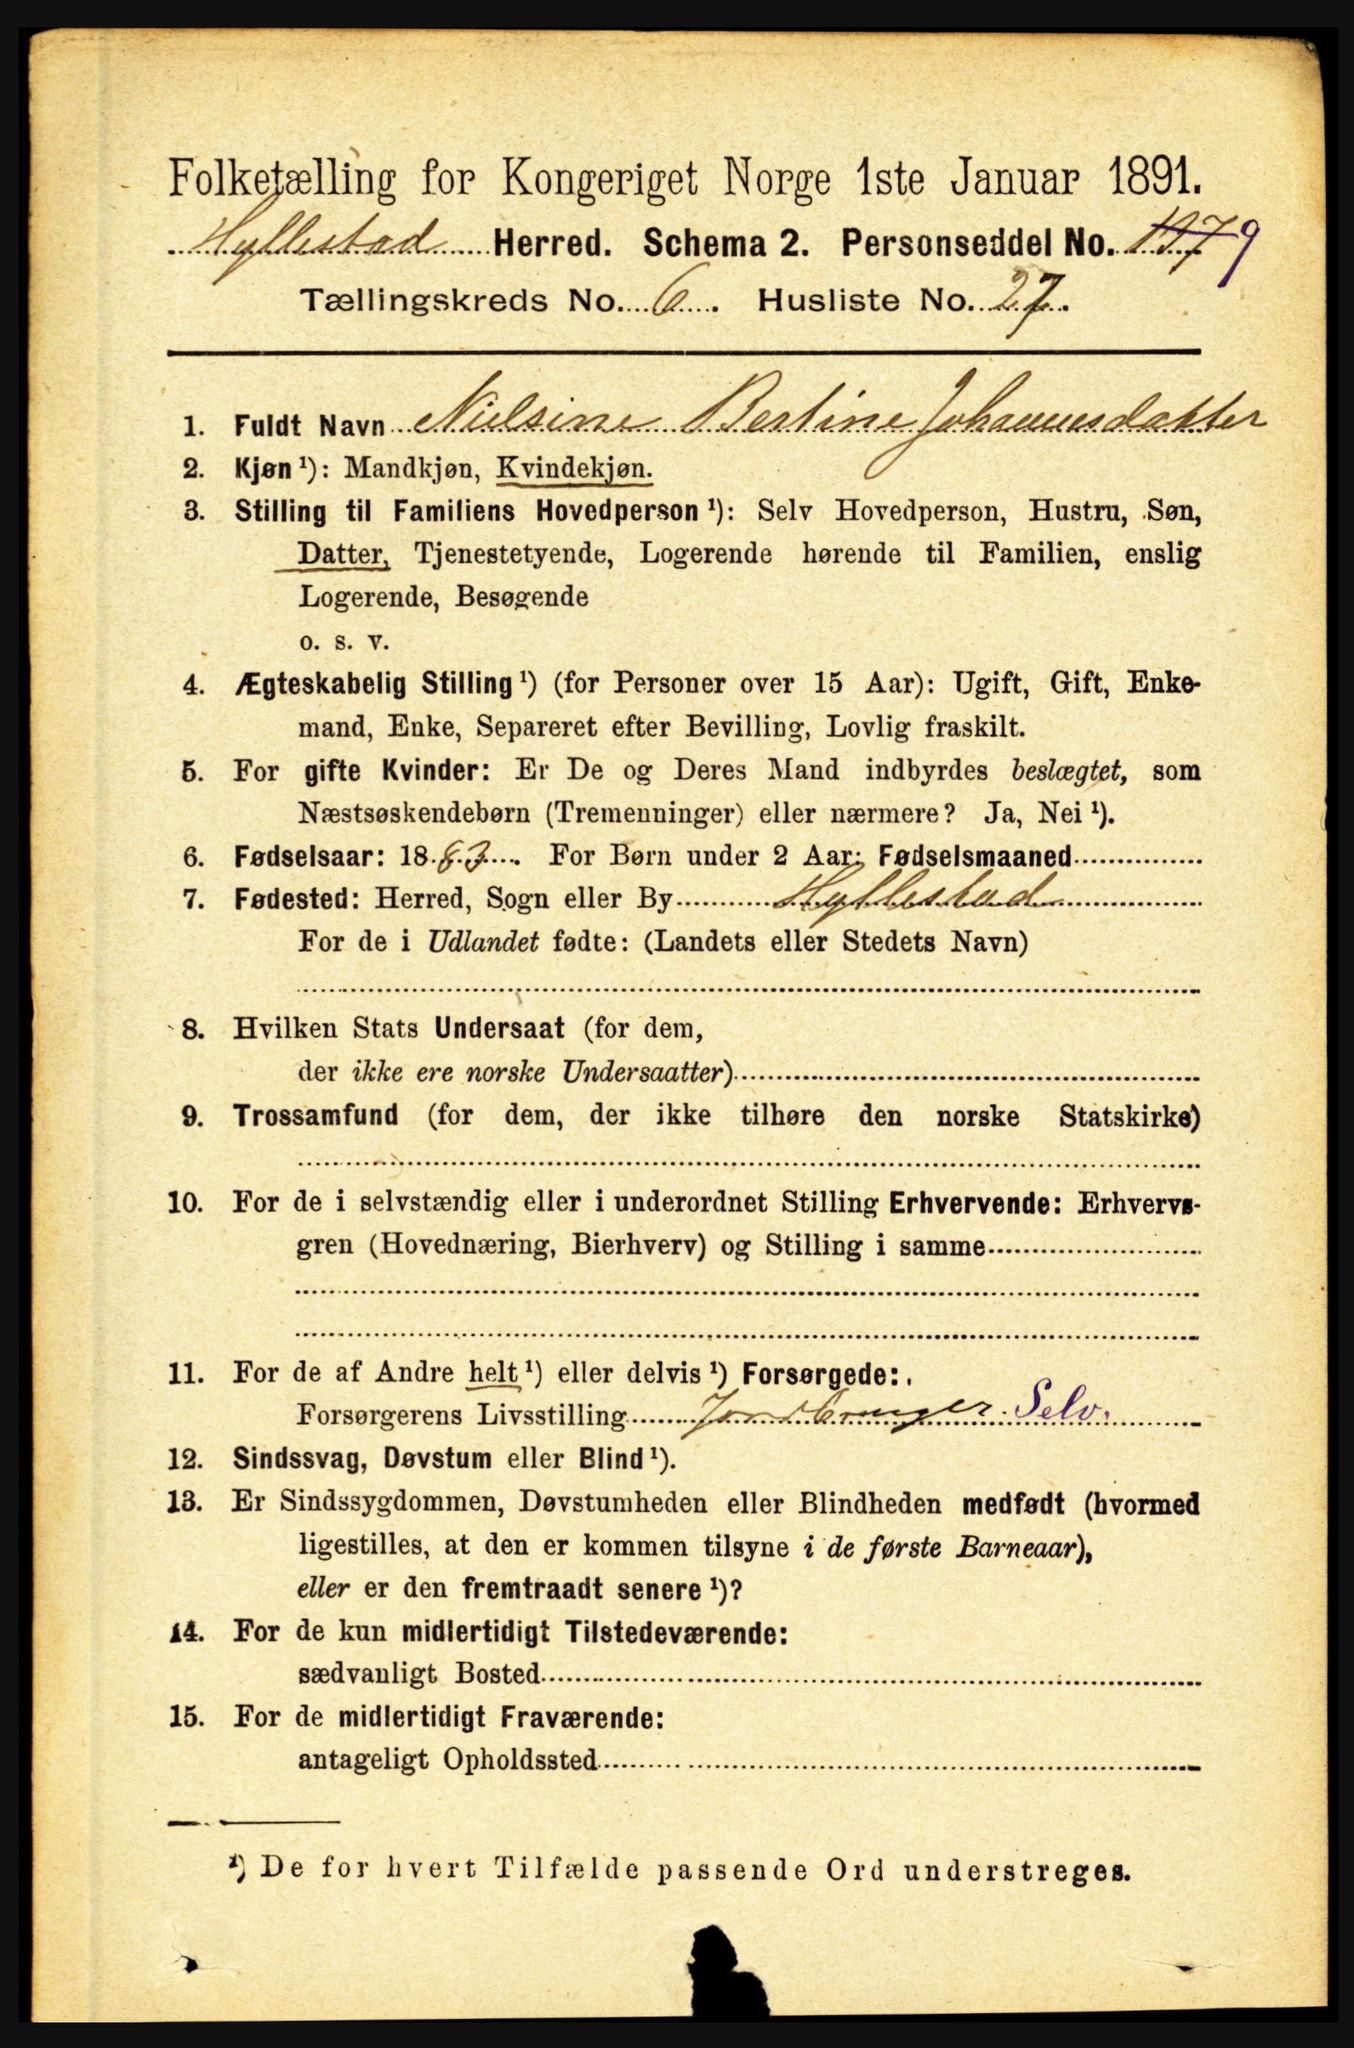 Folketælling for Kongeriget Norge 1ste Januar 1891.
Hyllestad Herred. Schema 2. Personseddel No. 9
Tællingskreds No. 6. Husliste No. 27.
1. Fuldt Navn Nielsine Bertine Johannesdatter
2. Kjøn ¹): Mandkjøn, Kvindekjøn.
3. Stilling til Familiens Hovedperson ¹): Selv Hovedperson, Hustru, Søn,
Datter, Tjenestetyende, Logerende hørende til Familien, enslig
Logerende, Besøgende
o. s. v.
4. Ægteskabelig Stilling ¹) (for Personer over 15 Aar): Ugift, Gift, Enke-
mand, Enke, Separeret efter Bevilling, Lovlig fraskilt.
5. For gifte Kvinder: Er De og Deres Mand indbyrdes beslægtet, som
Næstsøskendebørn (Tremenninger) eller nærmere? Ja, Nei ¹).
6. Fødselsaar: 1883. For Børn under 2 Aar: Fødselsmaaned
7. Fødested: Herred, Sogn eller By Hyllestad
For de i Udlandet fødte: (Landets eller Stedets Navn)
8. Hvilken Stats Undersaat (for dem,
der ikke ere norske Undersaatter)
9. Trossamfund (for dem, der ikke tilhøre den norske Statskirke)
10. For de i selvstændig eller i underordnet Stilling Erhvervende: Erhvervs-
gren (Hovednæring, Bierhverv) og Stilling i samme
11. For de af Andre helt ¹) eller delvis ¹) Forsørgede:
Forsørgerens Livsstilling Jordbruger Selv.
12. Sindssvag, Døvstum eller Blind ¹).
13. Er Sindssygdommen, Døvstumheden eller Blindheden medfødt (hvormed
ligestilles, at den er kommen tilsyne i de første Barneaar),
eller er den fremtraadt senere ¹)?
14. For de kun midlertidigt Tilstedeværende:
sædvanligt Bosted
15. For de midlertidigt Fraværende:
antageligt Opholdssted
¹) De for hvert Tilfælde passende Ord understreges.